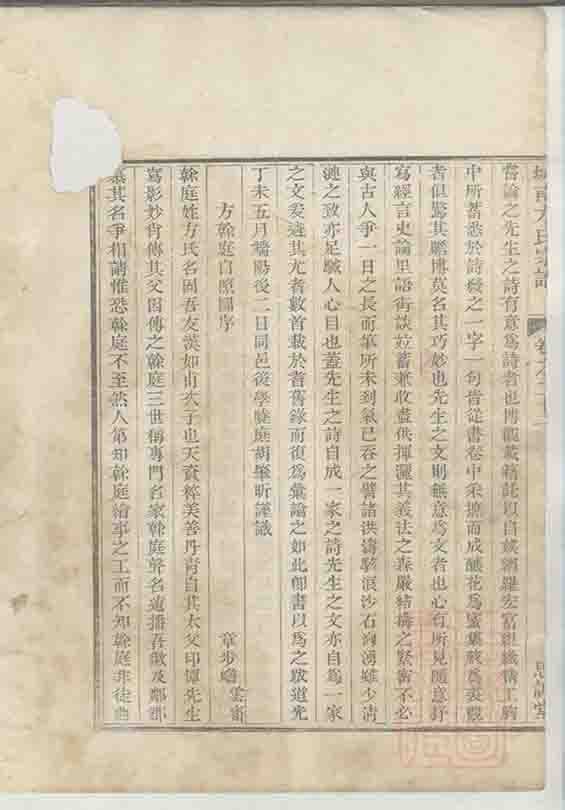 城南方氏宗譜
思訓堂
嘗論之先生之詩有意為詩者也博觀載籍託以自娛網羅宏富組織精工胸
中所蓄悉於詩發之一字一句皆從書卷中采擷而成釀花為蜜集腋為裘觀
者但驚其贍博莫名其巧妙也先生之文則無意為文者也心有所見隨意抒
寫經言史論里語街談竝蓄兼收盡供揮灑其義法之森嚴結構之緊密不必
與古人爭一日之長而筆所未到氣已吞之譬諸洪濤駭浪沙石洶湧雖少清
漣之致亦足駭人心目也蓋先生之詩自成一家之詩先生之文亦自為一家
之文爰擇其尤者數首載於耆舊錄而復為彙論之如此卽書以為之跋道光
丁未五月端陽後二日同邑後學曉庭胡肇昕謹識
方榦庭自照圖序
章步瀛雲齋
榦庭姓方氏名固吾友漢如甫次子也天資粹美善丹青自其太父印潭先生
寫影妙肖傳其父因傳之榦庭三世稱專門名家榦庭聲名遠播吾歙及鄰郡
慕其名爭相請惟恐榦庭不至然人第知榦庭繪事之工而不知榦庭非徒曲